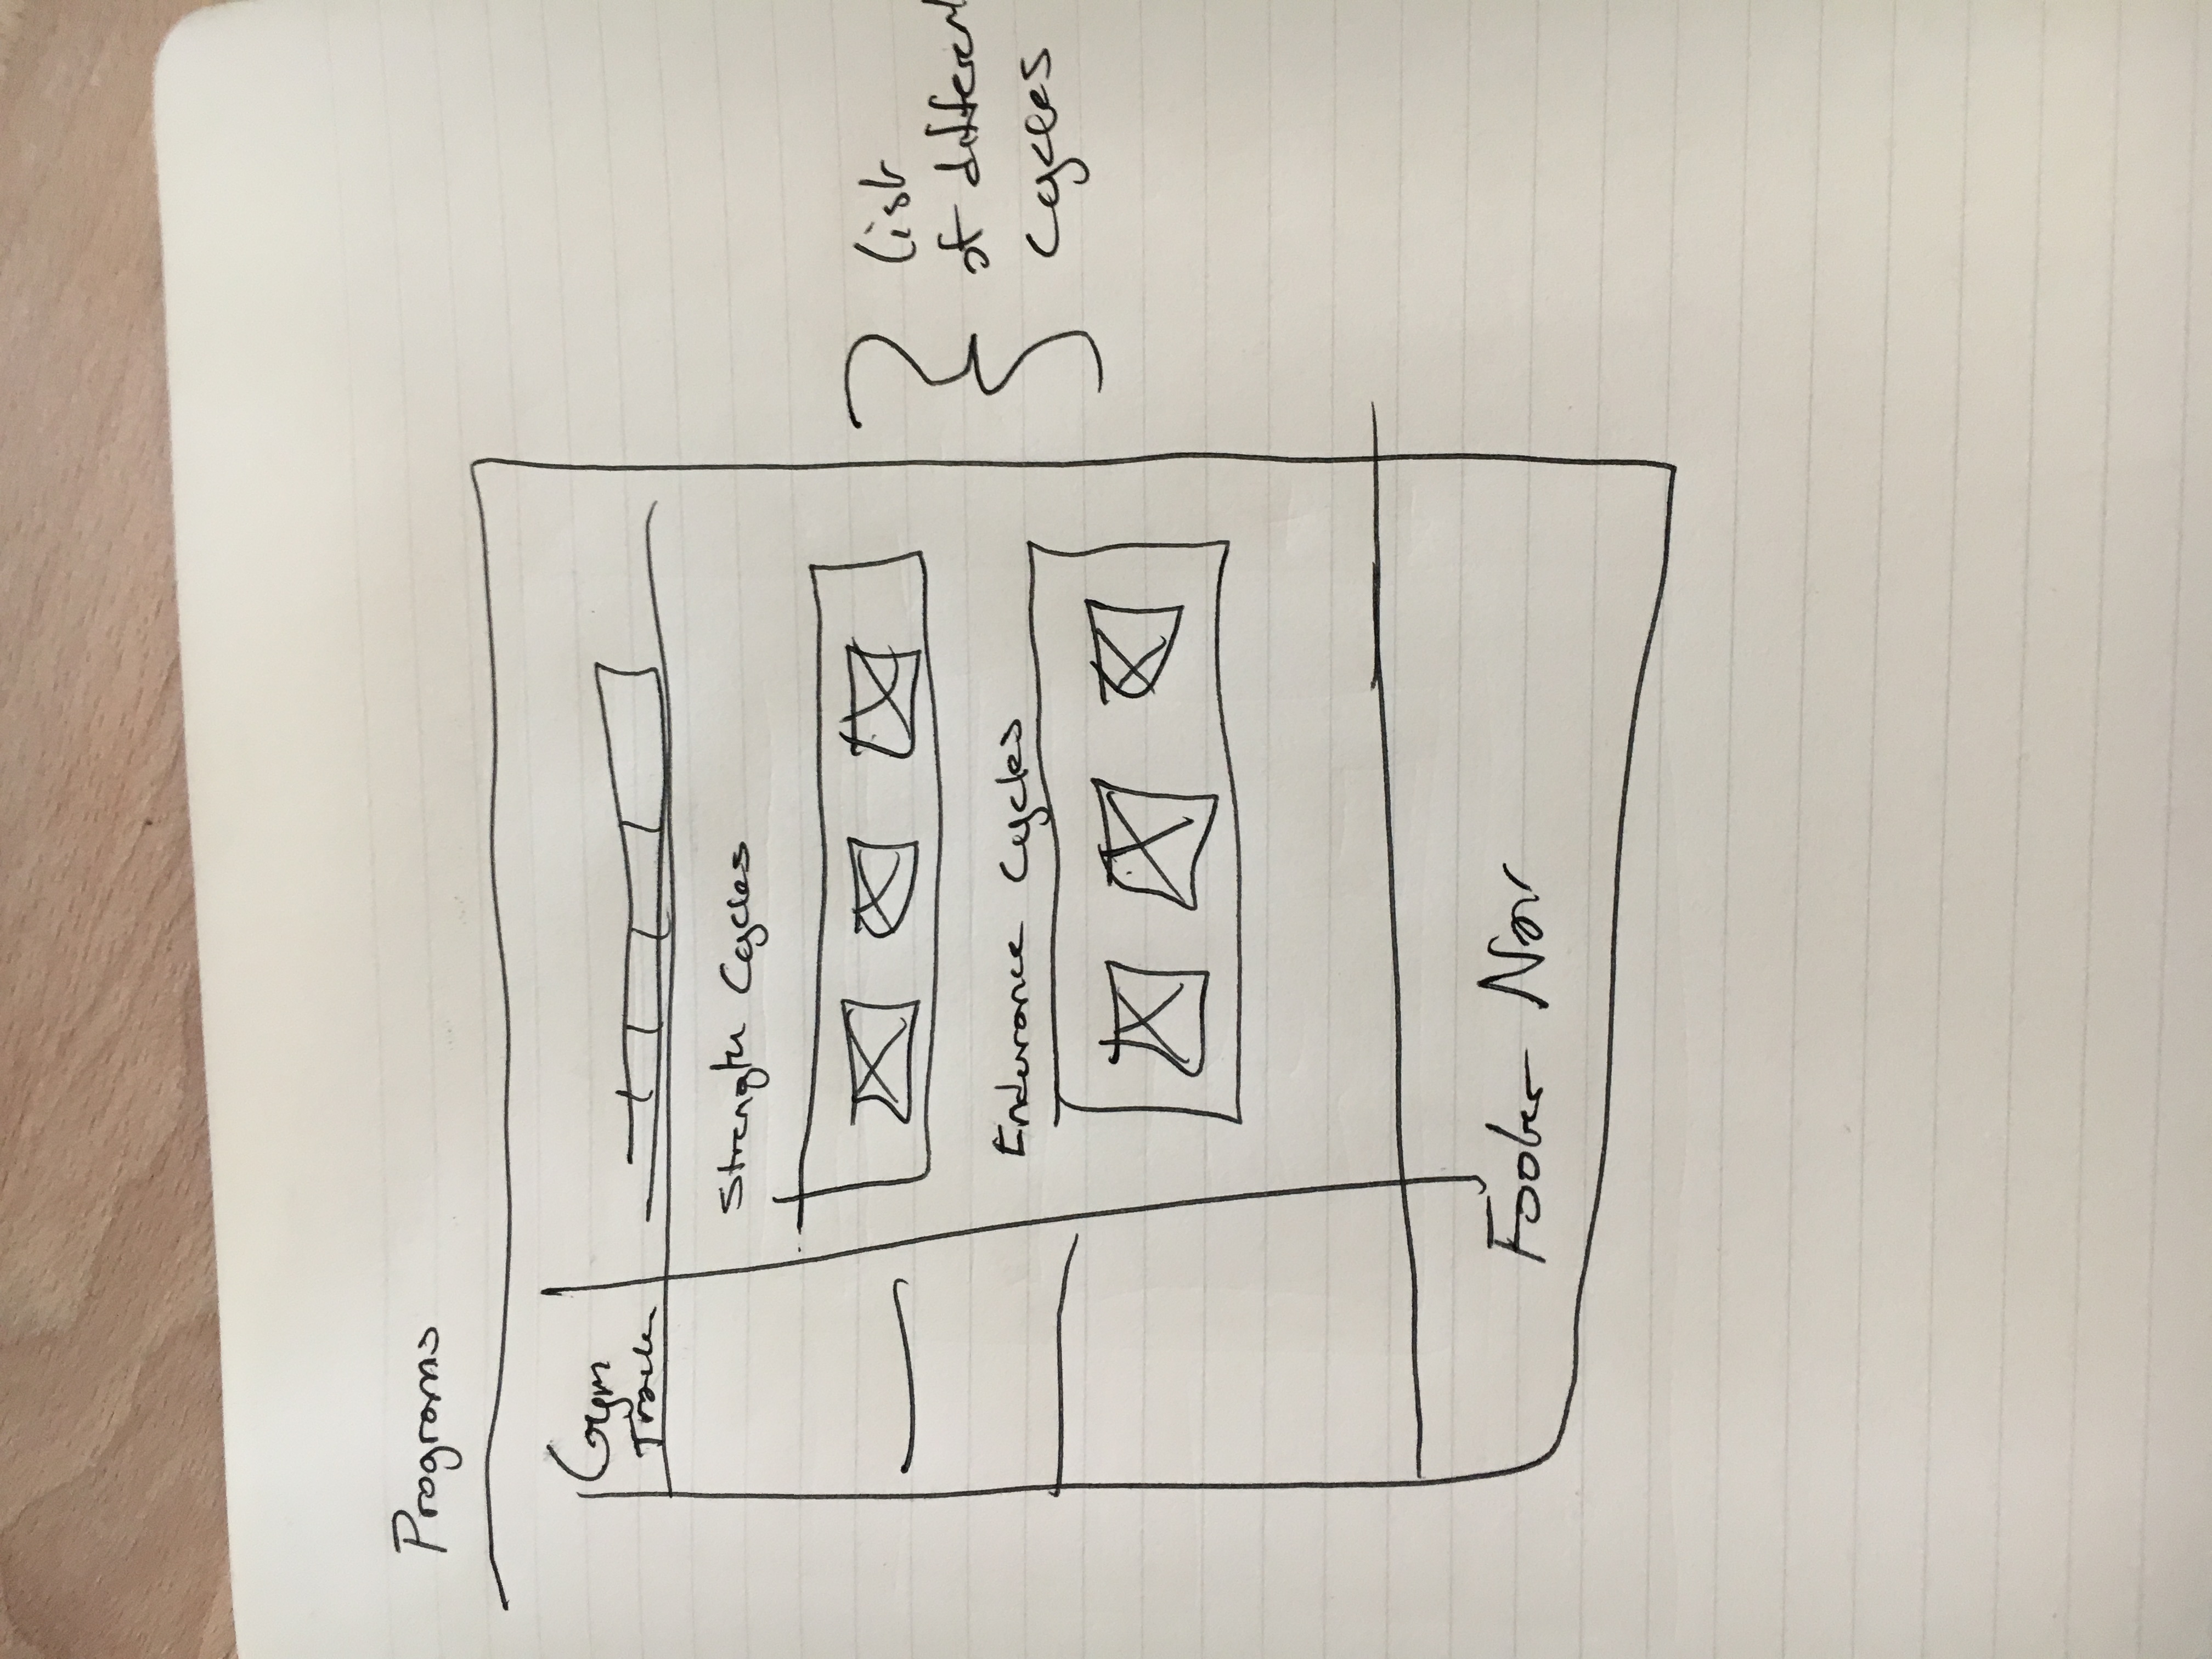 Programs
Gym
Tracker
Strength Cycles
Endurance Cycles
list
of different
cycles
Footer Nav